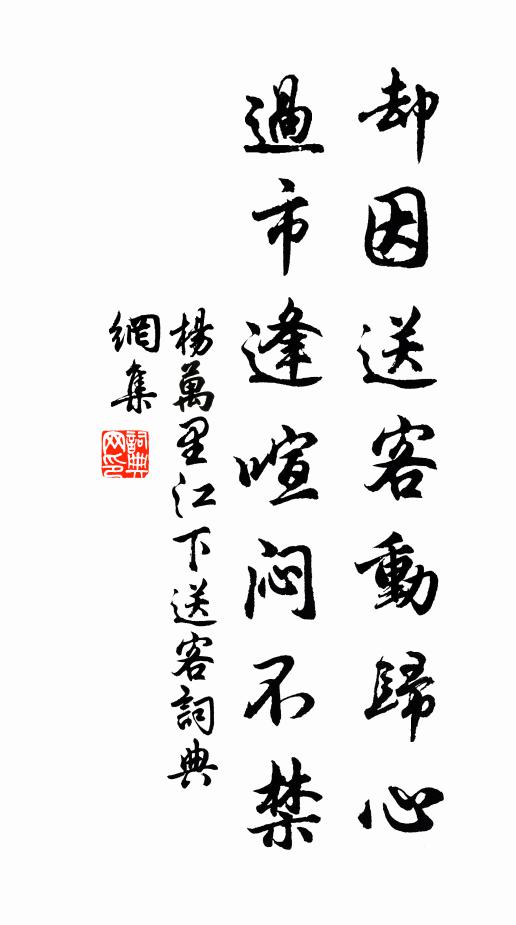 却因送客動歸心
過市逢喧悶不禁
楊萬里江下送客詞典
網集
詞典
网印